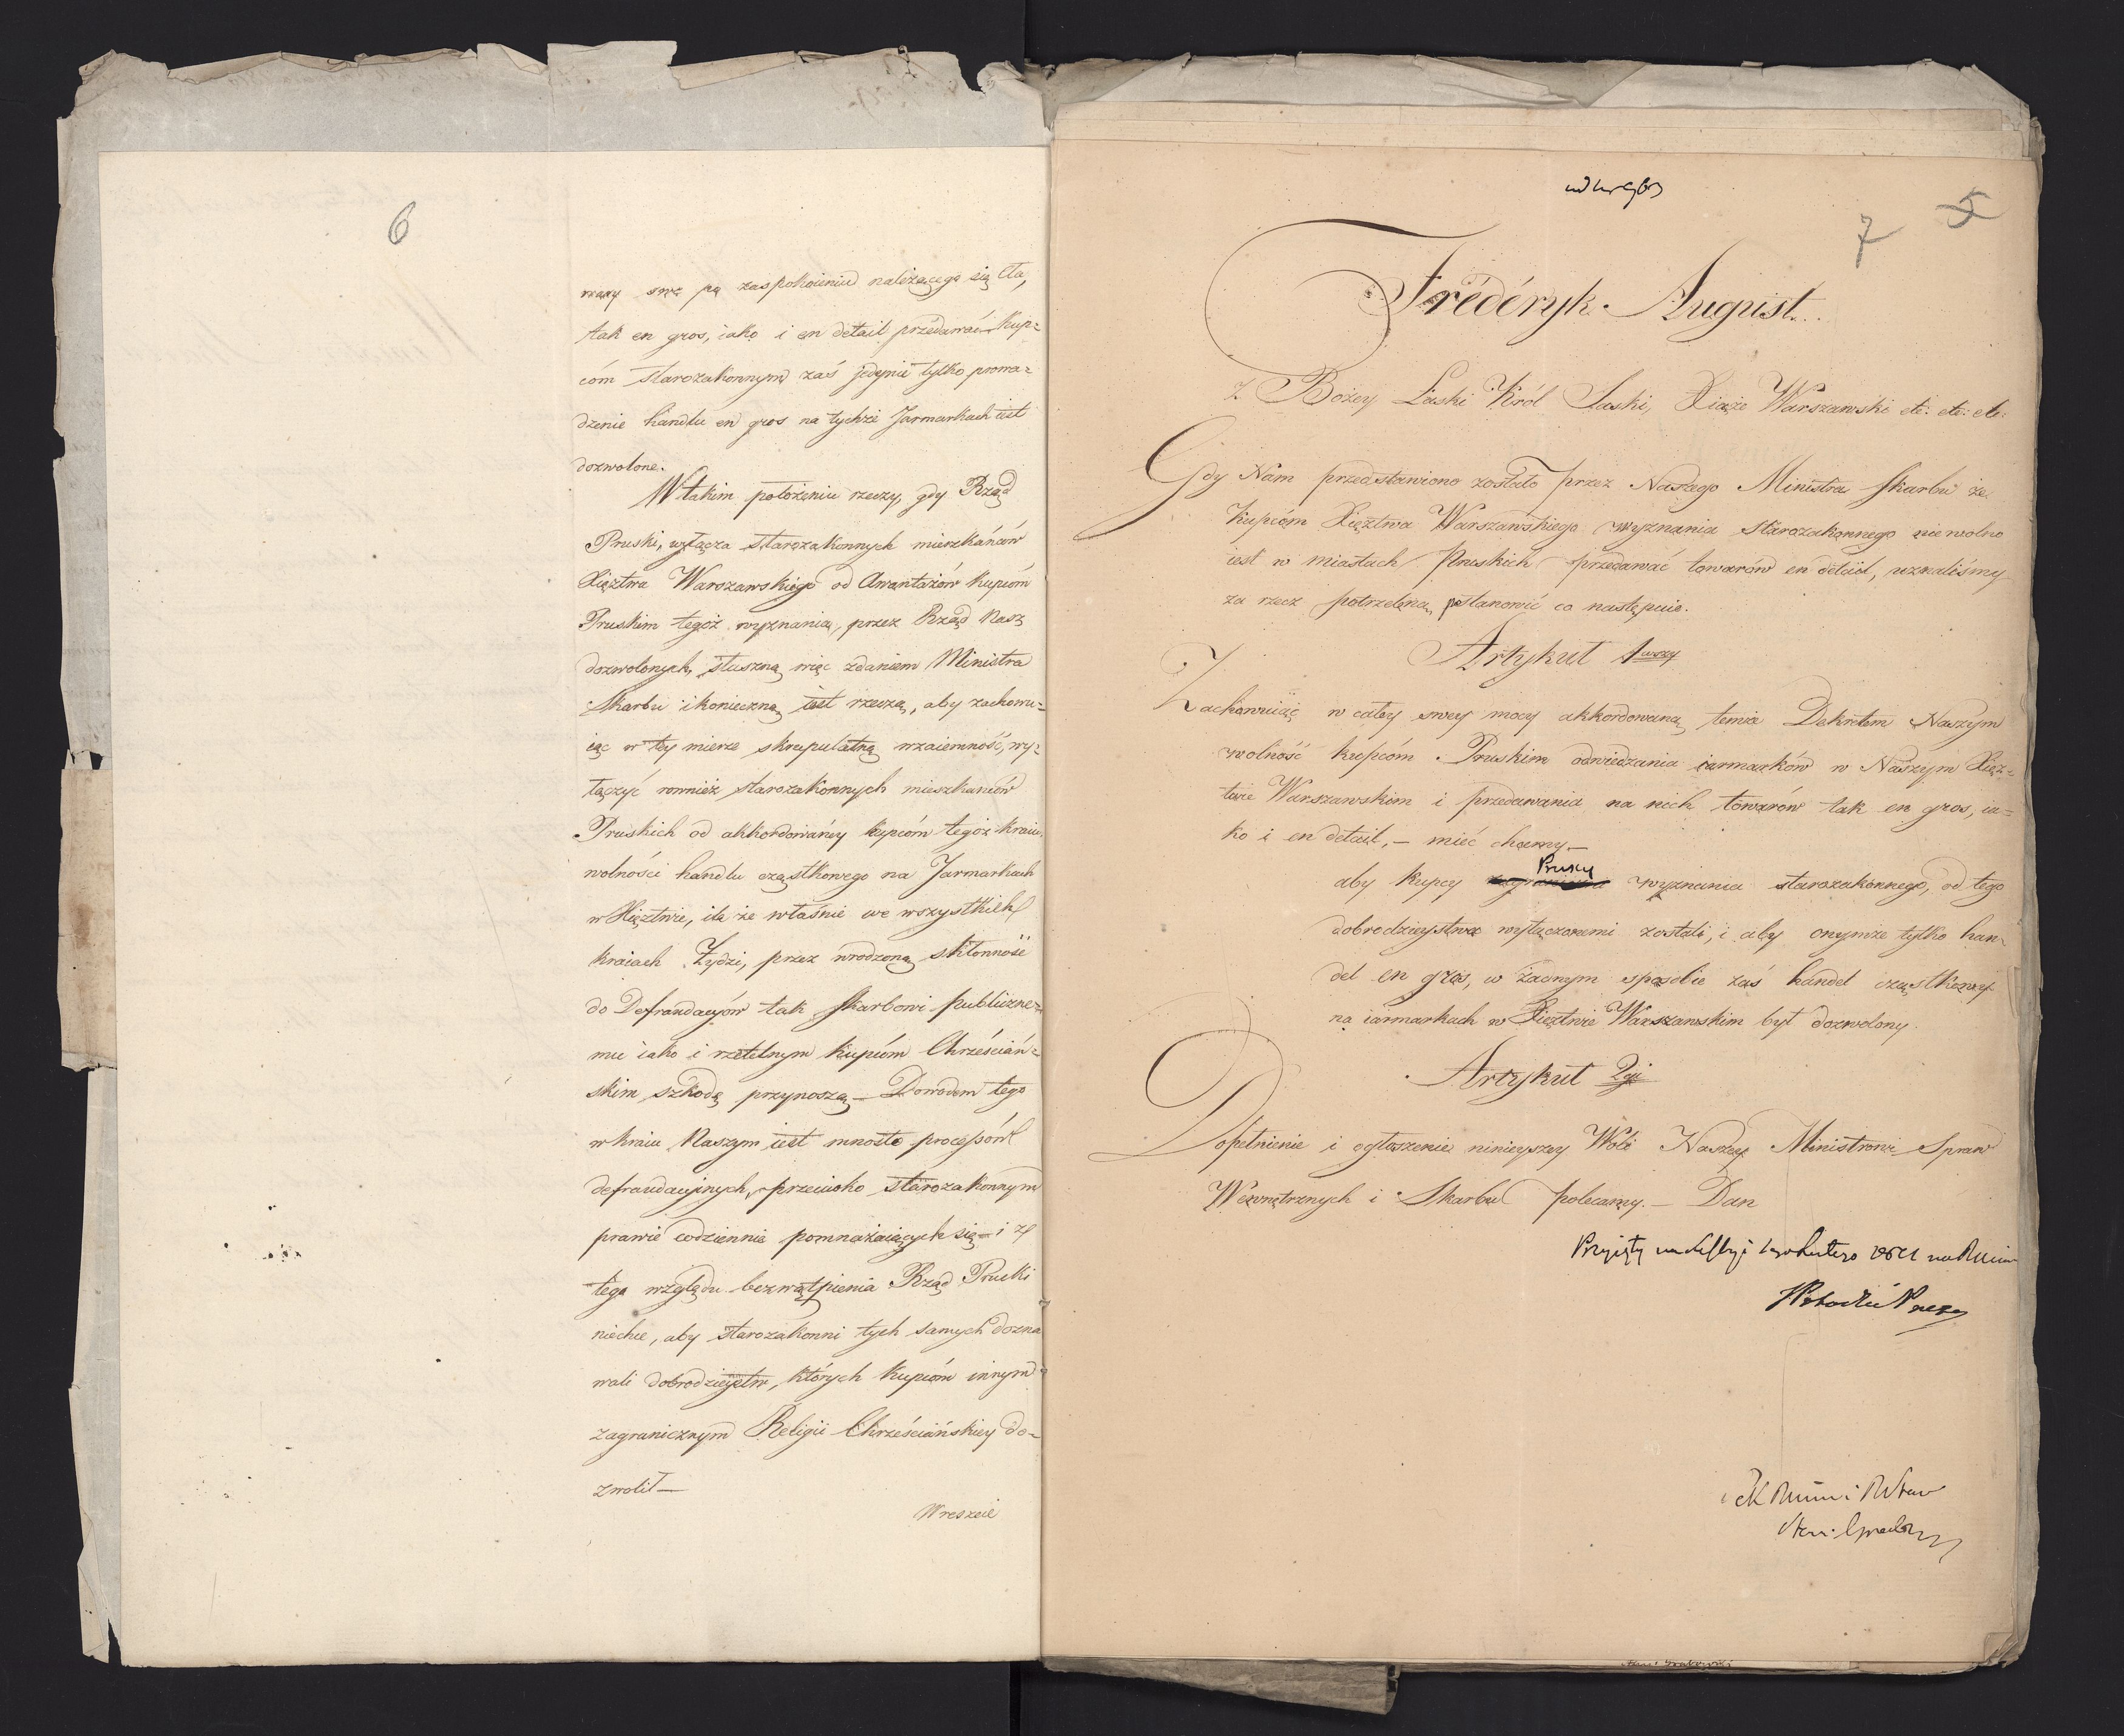 6
wary swe po zaspokoieniu należącego się Cła,
tak en gros, iako i en detail przedawać Kup=
com starozakonnym zaś jedynie tylko prowa=
dzenie handlu en gros na tychże Jarmarkach iest
dozwolone.
W takim położeniu rzeczy, gdy Rząd
Pruski, wyłącza starozakonnych mieszkańców
Xięztwa Warszawskiego od Awantażów kupcom
Pruskim tegoż wyznania, przez Rząd Nasz
dozwolonych, słuszną więc zdaniem Ministra
Skarbu i konieczną iest rzeczą, aby zachowu=
iąc w tey mierze skrupulatną wzaiemność, wy=
łączyć rownież starozakonnych mieszkańców
Pruskich od akkordowaney kupcom tegoż kraiu
wolności handlu cząstkowego na Jarmarkach
w Xięztwie, ile że właśnie we wszystkich
kraiach Żydzi, przez wrodzoną skłonność
do Defraudacyów tak Skarbowi publiczne=
mu iako i rzetelnym kupcom Chrześciań=
skim szkodę przynoszą – Dowodem tego
w kraiu Naszym iest mnosto processów
defraudacyjnych, przeciwko starozakonnym
prawie codziennie pomnażaiących się – i z
tego względu bezwątpienia Rząd Pruski
niechce, aby starozakonni tych samych dozna
wali dobrodzieystw, których Kupcom innym
zagranicznym Religii Chrześciańskiey do=
zwolił –
Wreszcie
7 5
Fréderyk August
Z Bożey Łaski Król Saski, Xiąże Warszawski etc: etc: etc:
Gdy Nam przedstawiono zostało przez Naszego Ministra Skarbu że
kupcom Xięztwa Warszawskiego wyznania starozakonnego nie wolno
iest w miastach Pruskich przedawać towarów en detail, uznaliśmy
za rzecz potrzebną, postanowić co następuie.
Artykuł 1wszy
Zachowuiąc w całey swey mocy akkordowaną temia Dekretem Naszym
wolność kupcom Pruskim odwiedzania iarmarków w Naszym Xięz=
twie Warszawskim i przedawania na nich towarów tak en gros, ia=
ko i en detail, – mieć chcemy –
Pruscy
aby kupcy zagraniczni wyznania starozakonnego, od tego
dobrodzieystwa wyłączonemi zostali, i aby onymże tylko han=
del en gros, w żadnym sposobie zaś handel cząstkowy
na iarmarkach w Xięztwie Warszawskim był dozwolony.
Artykuł 2gi
Dopełnienie i ogłoszenie ninieyszey Woli Naszey Ministrowi Spraw
Wewnętrznych i Skarbu polecamy. – Dan
Przyięty na